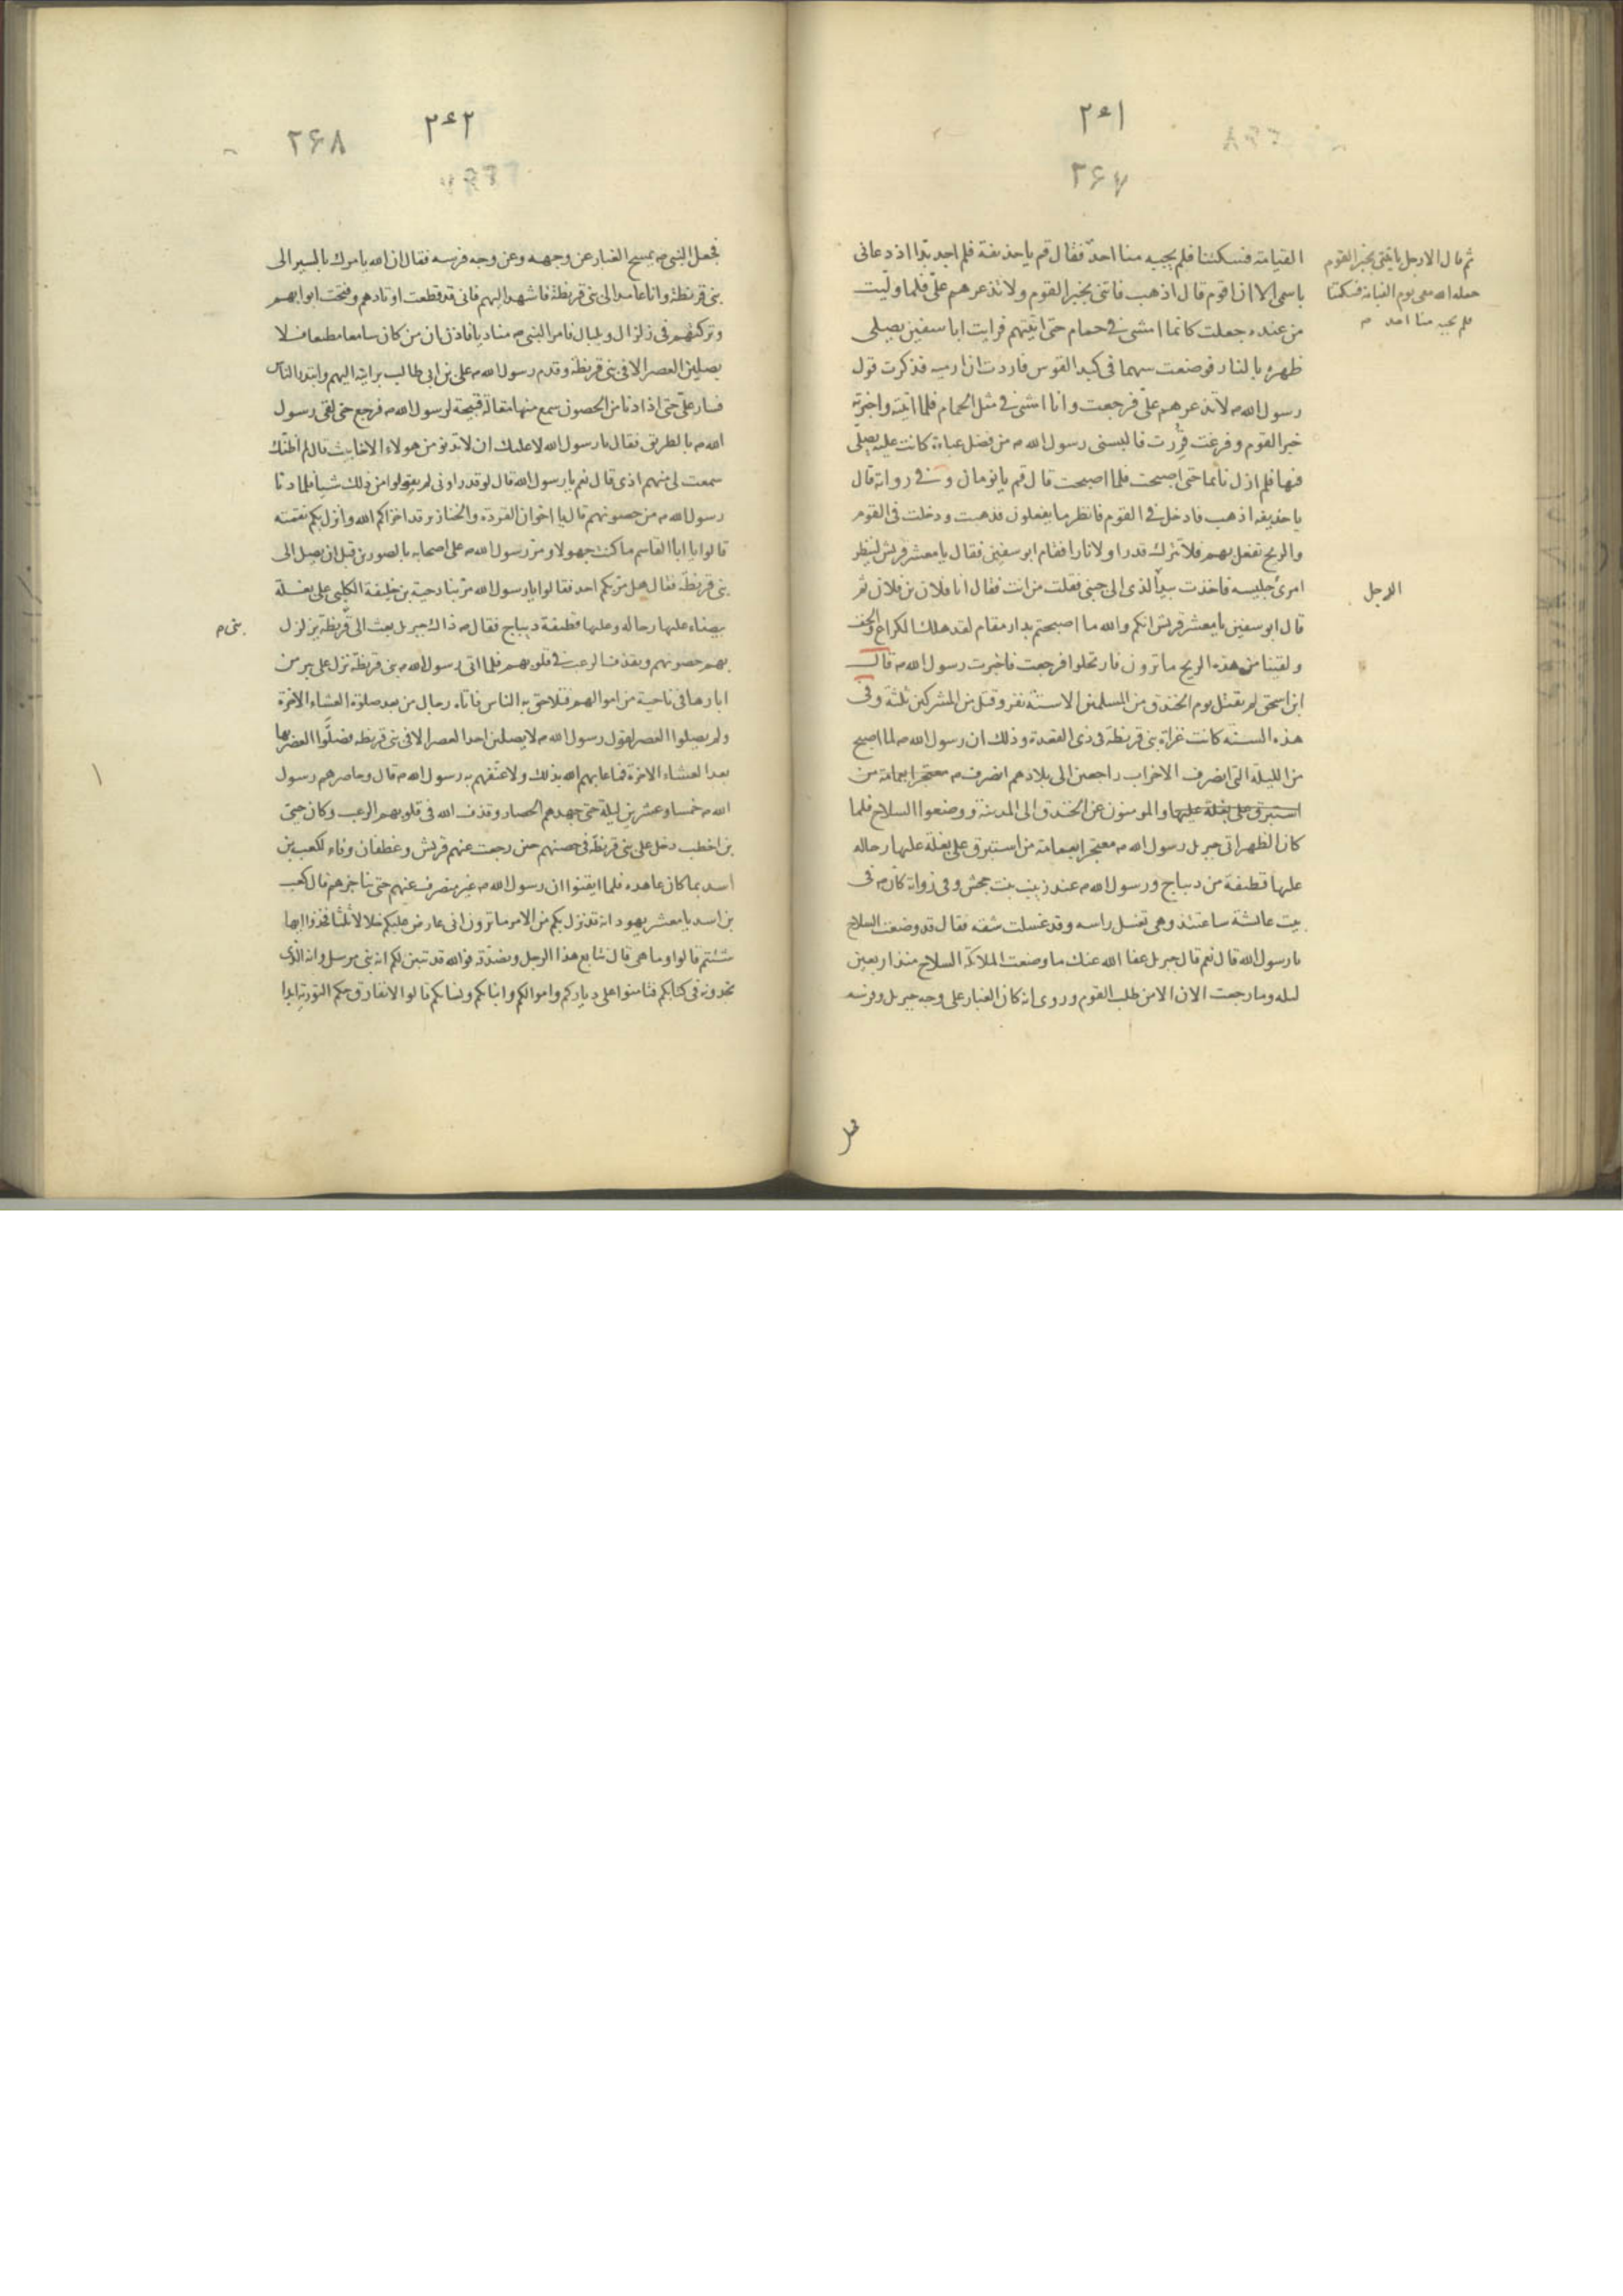 ٢٤١
٢۶٧
القيامة فسكتنا فلم يجيبه منا احد فقال قم ياحذيفة فلم اجد بدا اذ دعانى
باسمى الا ان اقوم قال اذهب فاتنى بخبر القوم ولا تذعرهم علىّ فلما وليت
من عنده جعلت كانما امشى فى حمام حتى اتيتهم فرايت ابا سفين يصلى
ظهره بالنار فوضعت سهما فى كبد القوس فاردت ان ارميه فذكرت قول
رسول الله م لا تذعرهم علىّ فرجعت وانا امشى فى مثل الحمام فلما اتيته واخبرته
خبر القوم وفرغت قررت فالبسنى رسول الله م من فضل عباءة كانت عليه يصلى
فيها فلم ازل نائما حتى اصبحت فلما اصبحت قال قم يا نومان وفى رواية قال
يا حذيفه اذهب فادخل فى القوم فانظر ما يفعلون فذهبت ودخلت فى القوم
والريح تفعل بهم فلا تترك قدرا ولا نارا فقام ابو سفين فقال يا معشر قريش لينظر
امرئ جليسه فاخذت بيد الذى الى جنبى فقلت من انت فقال انا فلان بن فلان ثم
قال ابو سفين يا معشر قريش انكم والله ما اصبحتم بدار مقام لقد هلك الكراع والخف
ولقينا من هذه الريح ما ترون فارتحلوا فرجعت فاخبرت رسول الله م قال
ابن اسحق لم يقتل يوم الخندق من المسلمين الا ستة نفر وقتل من المشركين ثلثة وفى
هذه السنة كانت غزاة بنى قريظة فى ذى القعدة وذلك ان رسول الله م لما اصبح
من الليلة التى انصرف الاحزاب راجعين الى بلادهم انصرف م معتجرا بعمامة من
استبرق على بغلة عليها والمومنون عن الخندق الى المدينة ووضعوا السلاح فلما
كان الظهر اتى جبريل رسول الله م معتجرا بعمامة من استبرق على بغلة عليها رحاله
عليها قطيفة من ديباج ورسول الله م عند زينب بنت جحش وفى رواية كان م فى
بيت عائشة ساعتئذ وهى تغسل راسه وقد غسلت شقه فقال قد وضعت السلاح
يا رسول الله قال نعم قال جبريل عفا الله عنك ما وضعت الملائكة السلاح منذ اربعين
ليله وما رجعت الان الا من طلب القوم وروى انه كان الغبار على وجه جبريل وفرسه
ثم قال الا رجل ياتينى بخبر القوم
جعله الله معى يوم القيامة فسكتنا
فلم يجبه منا احد م
الرجل
٢٤٢
٢۶٨
فجعل النبى م يمسح الغبار عن وجهه وعن وجه فرسه فقال ان الله يامرك بالمسير الى
بنى قريظة وانا عامد الى بنى قريظة فانهد اليهم فانى قد قطعت اوتادهم وفتحت ابوابهم
وتركتهم فى زلزال وبلبال فامر النبى م مناديا فاذن ان من كان سامعا مطيعا فلا
يصلين العصر الا فى بنى قريظة وقدم رسول الله م على بن ابى طالب برايته اليهم وابتدر الناس
فسار علىّ حتى اذا دنا من الحصون سمع منها مقالة قبيحة لرسول الله م فرجع حتى لقى رسول
الله م بالطريق فقال يا رسول الله لا عليك ان لا تدنو من هولاء الاخابيث قال لم اظنك
سمعت لى منهم اذى قال نعم يا رسول الله قال لو قد راونى لم يقولوا من ذلك شيئا فلما دنا
رسول الله م من حصونهم قال يا اخوان القردة والخنازير قد اخزاكم الله وانزل بكم نقمته
قالوا يا ابا القاسم ما كنت جهولا ومر رسول الله م على اصحابه بالصورين قبل ان يصل الى
بنى قريظة فقال هل مر بكم احد فقالوا يا رسول الله مر بنا دحية بن خليفة الكلبى على بغلة
بيضاء عليها رحاله وعليها قطيفة ديباج فقال م ذاك جبريل بعث الى قريظة يزلزل
بهم حصونهم ويقذف الرعب فى قلوبهم فلما اتى رسول الله م بنى قريظة نزل على بير من
ابارها فى ناحية من اموالهم فتلاحق به الناس فاتاه رجال من بعد صلوة العشاء الاخرة
ولم يصلوا العصر لقول رسول الله م لا يصلين احد العصر الا فى بنى قريظة فصلّوا العصر بها
بعد العشاء الاخرة فما عابهم الله بذلك ولا عنّفهم به رسول الله م قال وحاصرهم رسول
الله م خمسا وعشرين ليلة حتى جهدهم الحصار وقذف الله فى قلوبهم الرعب وكان حيى
بن اخطب دخل على بنى قريظة فى حصنهم حين رجعت عنهم قريش وغطفان وفاء لكعب بن
اسد بما كان عاهده فلما ايقنوا ان رسول الله م غير منصرف عنهم حتى يناجزهم قال كعب
بن اسد يا معشر يهود انه قد نزل بكم من الامر ما ترون انى عارض عليكم خلالا ثلثا فخذوا ايها
شئتم قالوا وما هى قال نتابع هذا الرجل ونصدّقه فوالله قد تبين لكم انه نبى مرسل وانه الذى
تجدونه فى كتابكم فتامنوا على دياركم واموالكم وابنائكم ونسائكم قالوا لا نفارق حكم التورية ابدا
بنى م